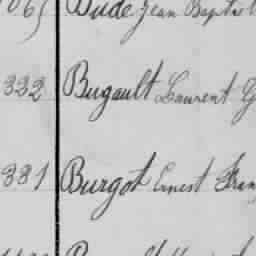 Bude Jean Baptist
332 Bugault Laurent
381 Burgot Ernest Fran